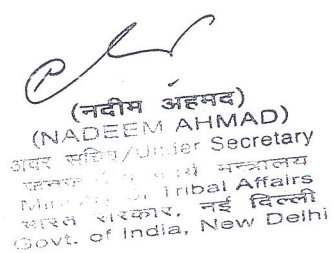 (नदीम अहमद)
(NADEEM AHMAD)
अवर सचिव/Under Secretary
मन्त्रालय
Tribal Affairs
भारत सरकार, नई दिल्ली
Govt. of India, New Delhi